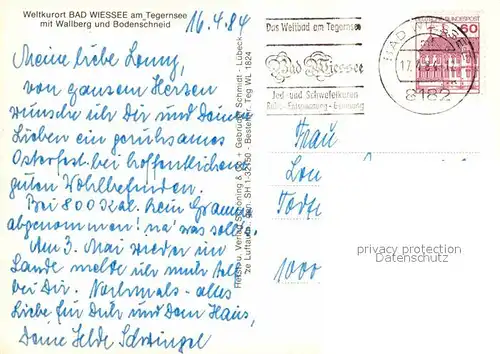 Weltkurort BAD WIESSEE am Tegernsee
mit Wallberg und Bodenschneid
16.4.84
Meine liebe Lonny,
von ganzem Herzen
wünsche ich Dir und Deinen
Lieben ein geruhsames
Osterfest bei hoffentlichem
guten Wohlbefinden.
Bei 800 Kal. kein Gramm
abgenommen! na' was solls.
Am 3. Mai wieder im
Lande melde ich mich tel.
bei Dir. Nochmals alles
Liebe für Dich und Dein Haus,
Deine Helde Schwingel
Verlag Schöning & Co + Gebrüder Schmidt - Lübeck
SH 1-32150 - Bestell-Nr. Teg WL 1824
Das Weltbad am Tegernsee
Bad Wiessee
Jod- und Schwefelkuren
Ruhe - Entspannung - Erholung
DEUTSCHE BUNDESPOST
60
BAD WIESSEE
8182
Frau
1000
privacy protection
Datenschutz